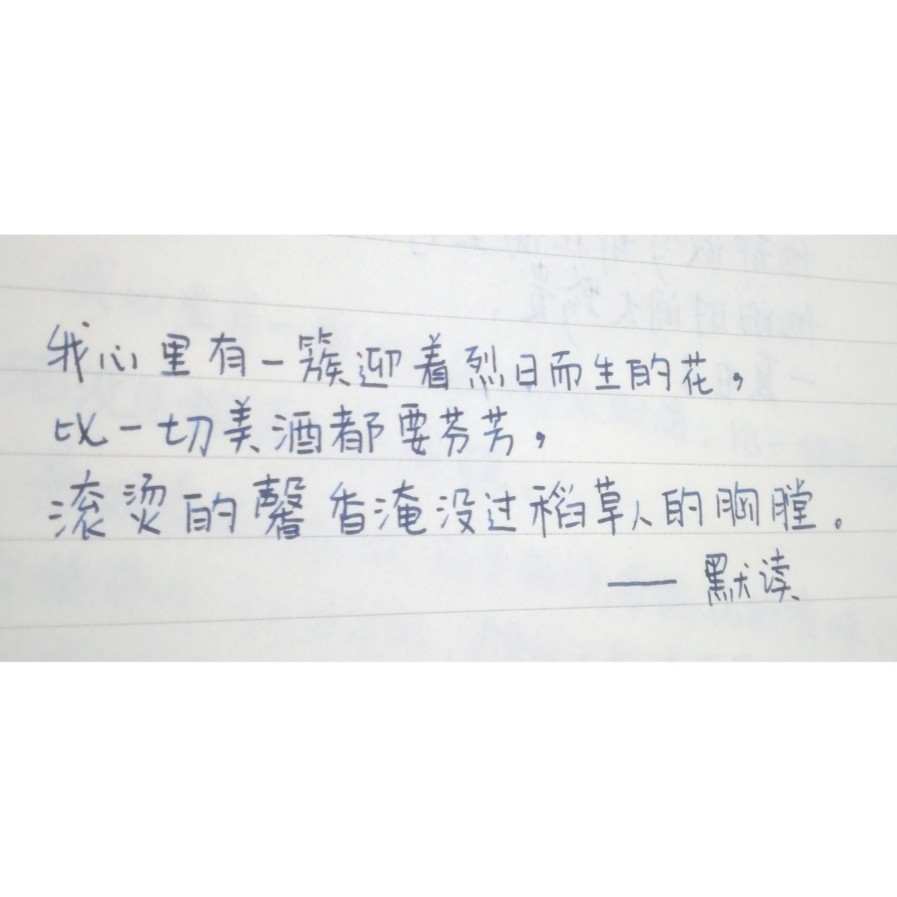 我心里有一簇迎着烈日而生的花，
比一切美酒都要芬芳，
滚烫的馨香淹没过稻草人的胸膛。
—— 默读